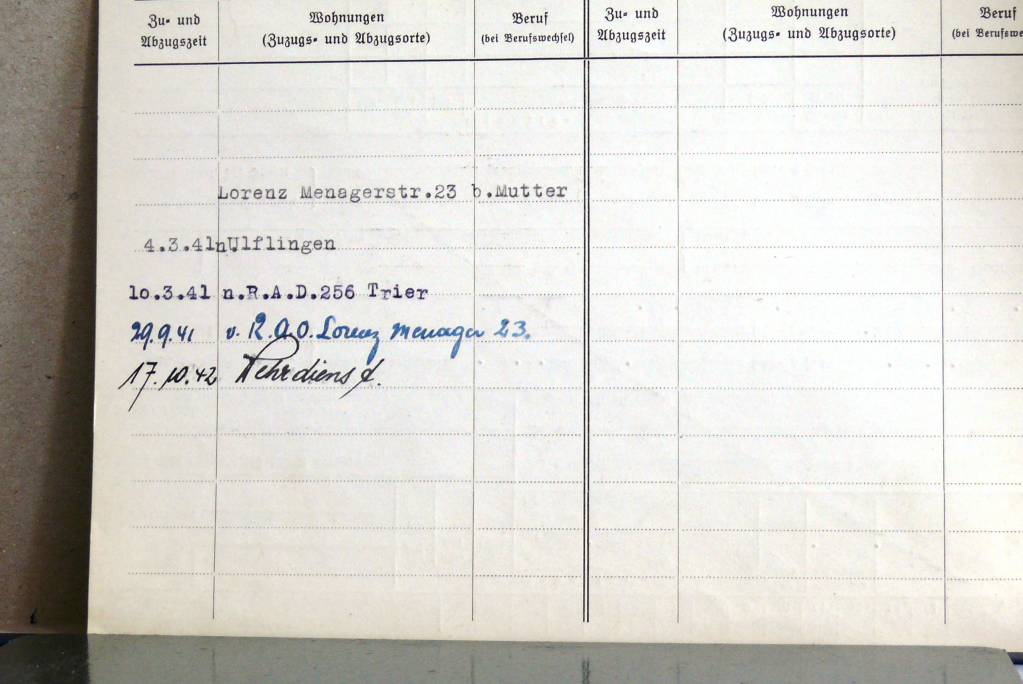 Zu- und Abzugszeit
Wohnungen
(Zuzugs- und Abzugsorte)
Beruf
(bei Berufswechsel)
Zu- und Abzugszeit
Wohnungen
(Zuzugs- und Abzugsorte)
Beruf
(bei Berufswe
Lorenz Menagerstr.23 b.Mutter
4.3.41 n Ulflingen
10.3.41 n.R.A.D.256 Trier
29.9.41 v. R.A.D. Lorenz Menager 23.
17.10.42 Wehrdienst.